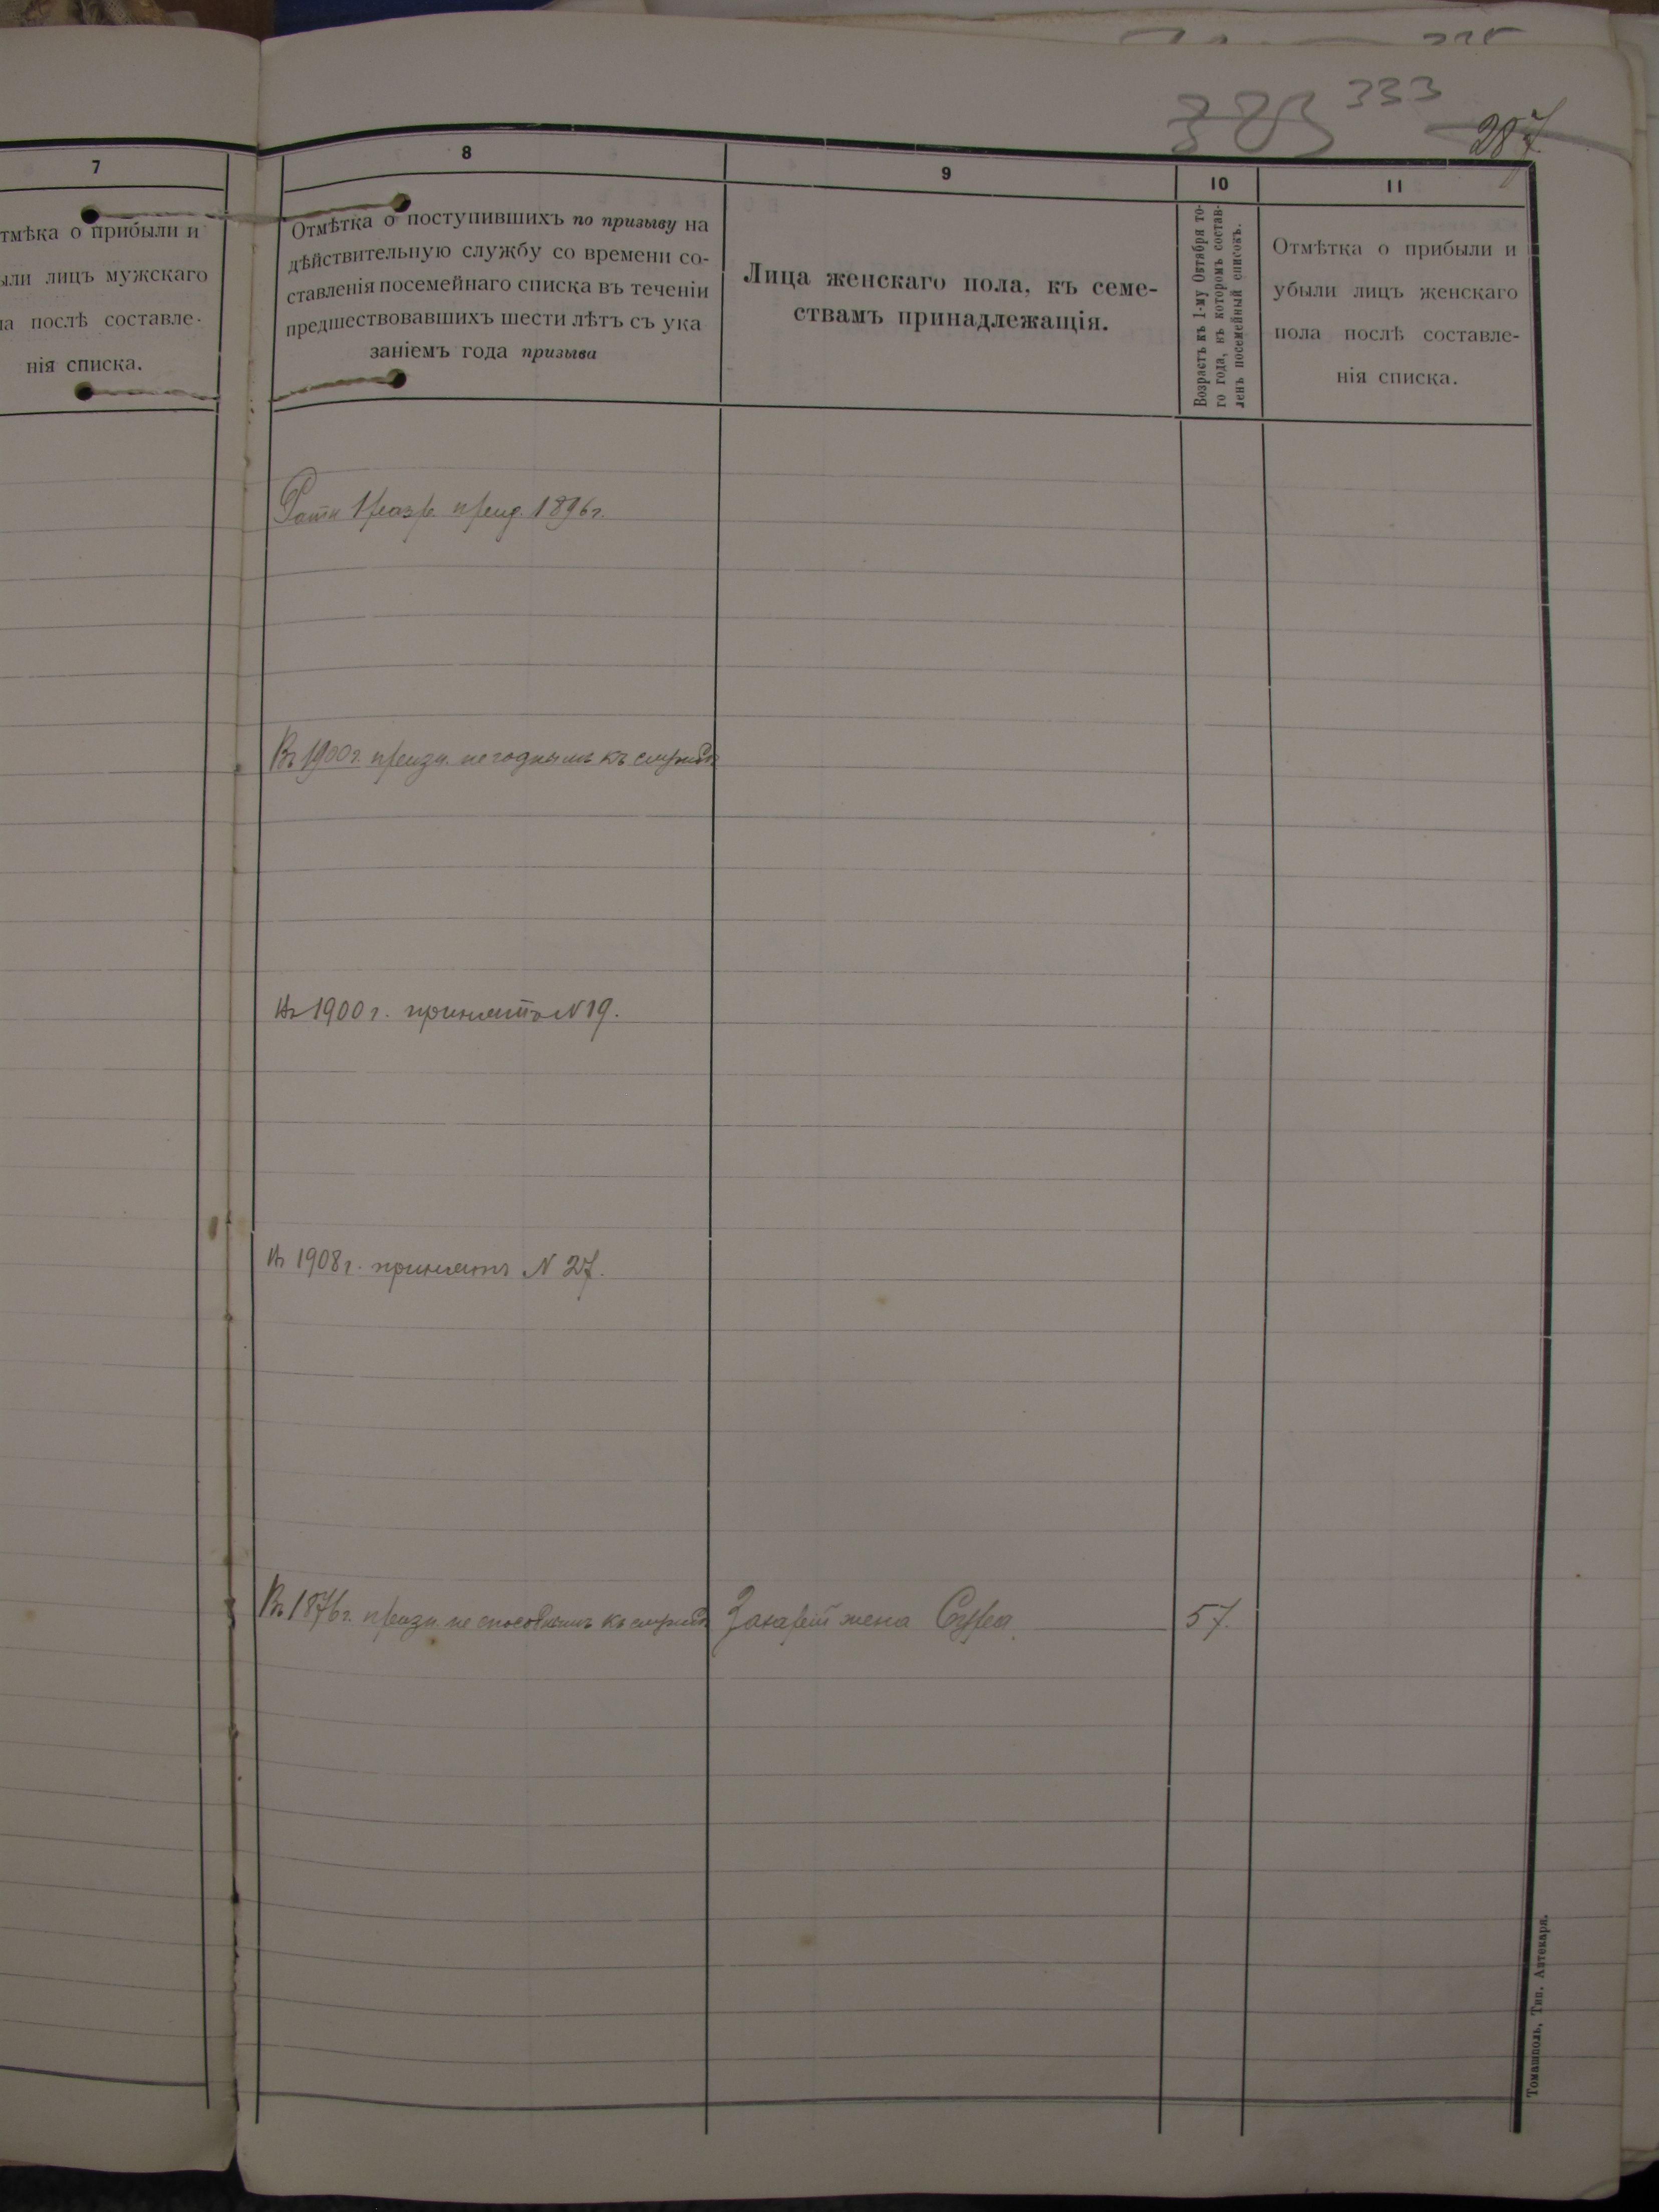 383 333
287.
7
тмѣка о прибыли и
ыли лицъ мужскаго
ла послѣ составле-
нія списка.
8
Отмѣтка о поступившихъ по призыву на
дѣйствительную службу со времени со-
ставленія посемейнаго списка въ теченіи
предшествовавшихъ шести лѣтъ съ ука
заніемъ года призыва
9
Лица женскаго пола, къ семе-
ствамъ принадлежащія.
10
Возрастъ къ 1-му Октября то-
го года, къ которомъ состав-
ленъ посемейный списокъ.
11
Отмѣтка о прибыли и
убыли лицъ женскаго
пола послѣ составле-
нія списка.
Ратн 1 разр. 1896 г.
Въ 1900 г. призн. негоднымъ къ службѣ
Въ 1900 г. принятъ N 19.
Въ 1908 г. принятъ N 27.
Въ 1876 г. призн. не способнымъ къ службѣ жена 57.
Томашполь, Тип. Аптекаря.